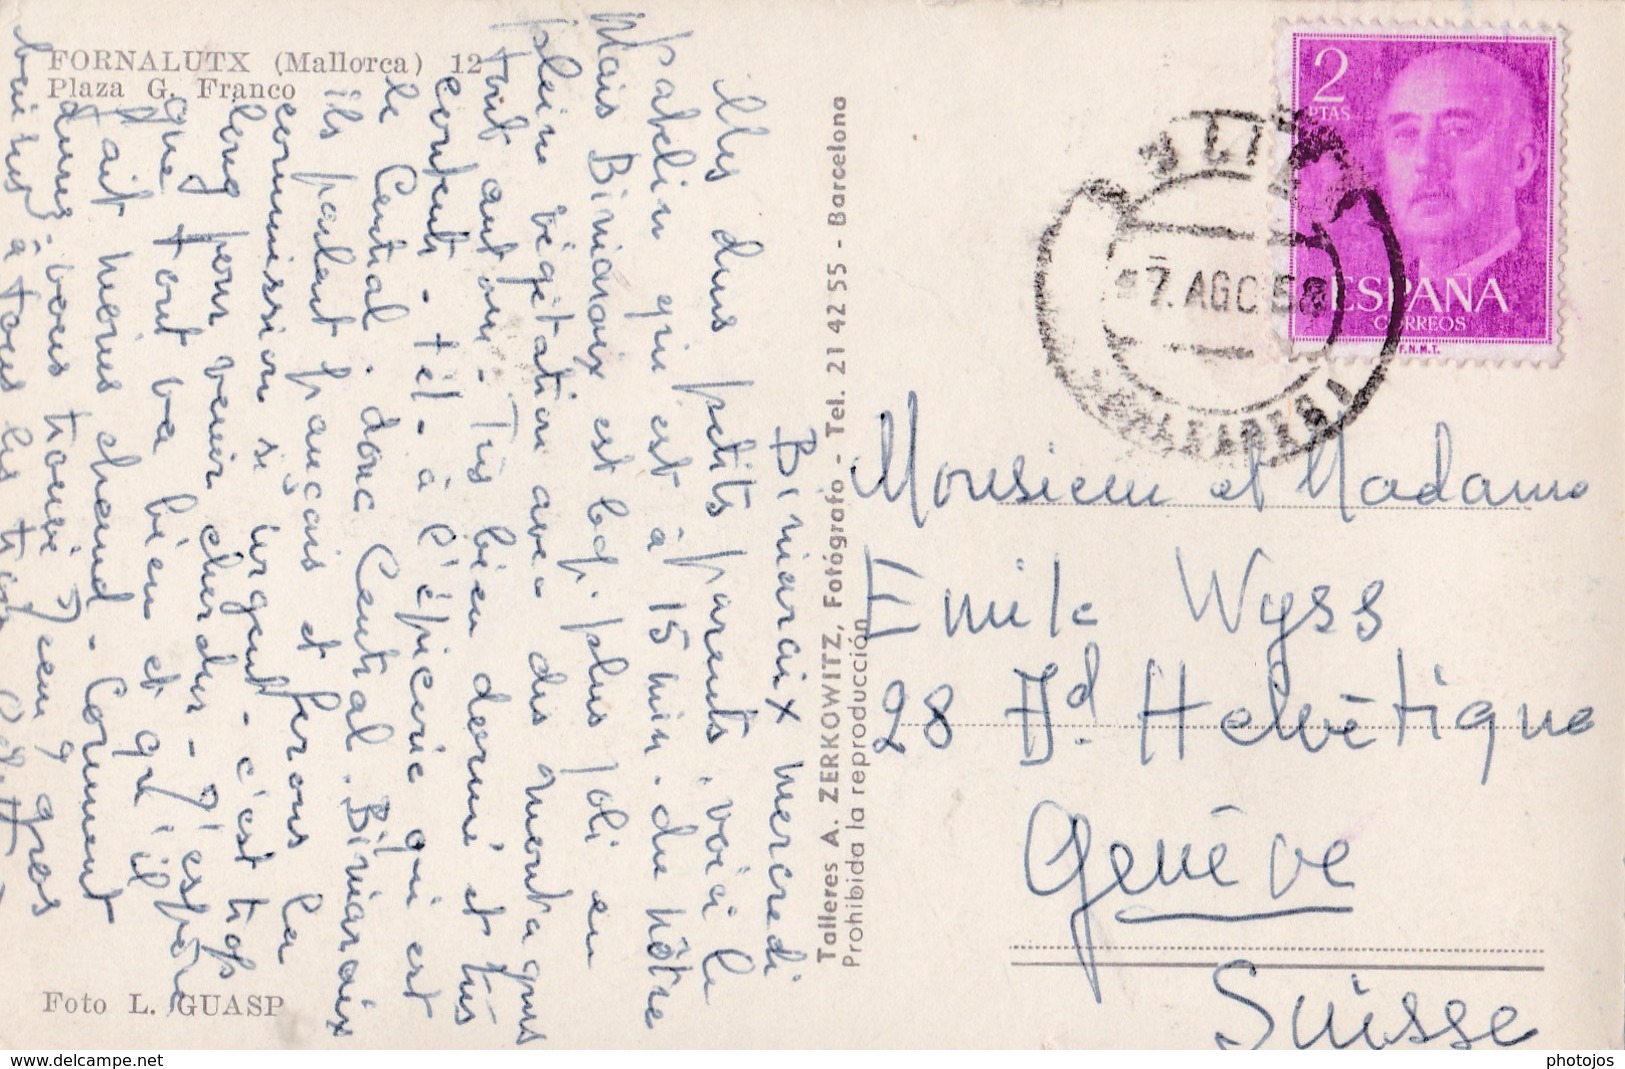 FORNALUTX (Mallorca) 12
Plaza G. Franco
Biniaraix mercredi
Mes chers petits parents, voici le
patelin qui est à 15 min. du nôtre
Mais Biniaraix est bcp. plus joli en
plein végétation avec des montagnes
tout autour. Très bien dormi et très
content. tél. à l'épicerie qui est
le Central. donc Central. Biniaraix
ils parlent français et ferons la
commission si urgent. c'est trop
long pour venir chercher. J'espère
que tout va bien et qu'il
fait moins chaud. Comment
vous trouvé
baisers à tous les trois
Foto L. GUASP
Talleres A. ZERKOWITZ, Fotógrafo - Tel. 21 42 55 - Barcelona
Prohibida la reproducción
2
PTAS
ESPAÑA
CORREOS
F.N.M.T.
7. AGO
Monsieur et Madame
Emile Wyss
28 Bd. Helvétique
Genève
Suisse
www.delcampe.net
photojos